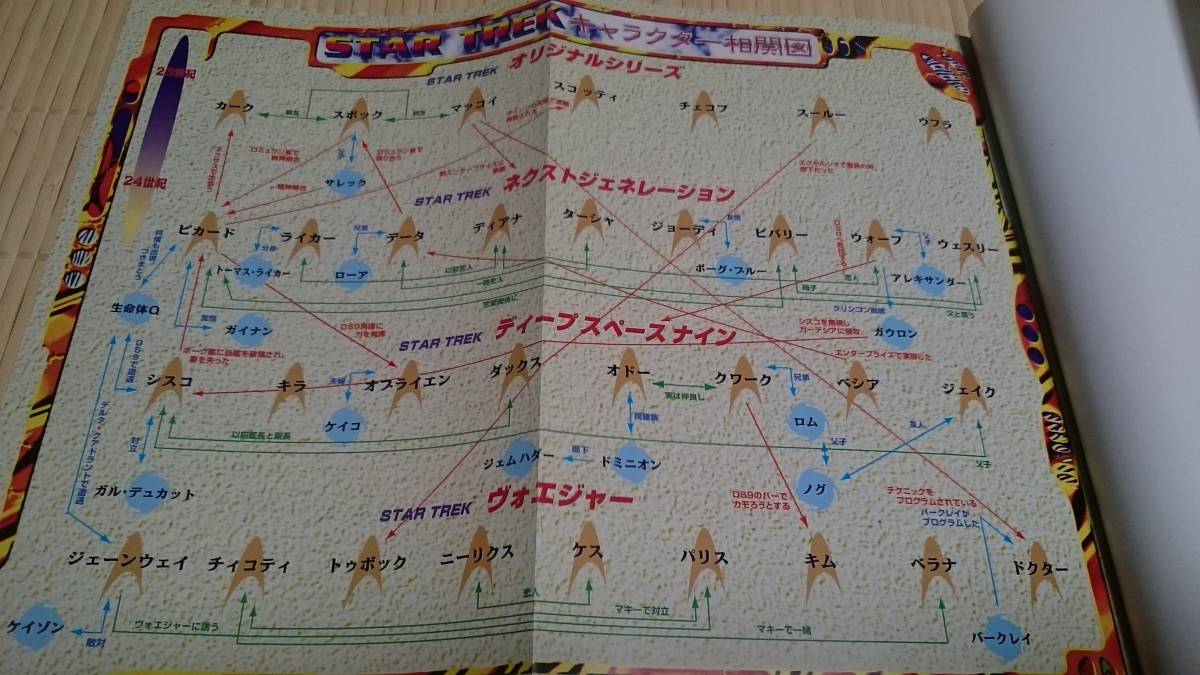 STAR TREK キャラクター相関図
STAR TREK オリジナルシリーズ
カーク
スポック
マッコイ
スコッティ
チェコフ
スールー
ウフラ
親友
親友
父子
サレック
ロミュラン星で
精神融合
エクセルシオで
24世紀
STAR TREK ネクストジェネレーション
ピカード
ライカー
データ
ディアナ
ターシャ
ジョーディ
ビバリー
ウォーフ
ウェスリー
分身
トーマス・ライカー
兄弟
ローア
友情
ボーグ・ブルー
アレキサンダー
以前恋人
一時恋人
恋人
母子
父と慕う
クリンゴン
ガウロン
生命体Q
友情
ガイナン
ボーグ艦に自艦を破壊され、
妻を失った
DS9再建に
力を発揮
DS9で遭遇
エンタープライズで実験した
STAR TREK ディープスペースナイン
シスコ
キラ
オブライエン
ダックス
オドー
クワーク
ベシア
ジェイク
夫婦
ケイコ
実は仲良し
兄弟
ロム
同種族
父子
友人
父子
対立
ガル・デュカット
ジェムハダー
部下
ドミニオン
ノグ
デルタ・クアドラントで遭遇
STAR TREK ヴォエジャー
DS9のバーで
カモろうとする
テクニックを
プログラムされている
バークレイが
プログラムした
ジェーンウェイ
チィコティ
トゥボック
ニーリクス
ケス
パリス
キム
ベラナ
ドクター
恋人
マキーで対立
マキーで一緒
ヴォエジャーに誘う
ケイゾン
敵対
バークレイ